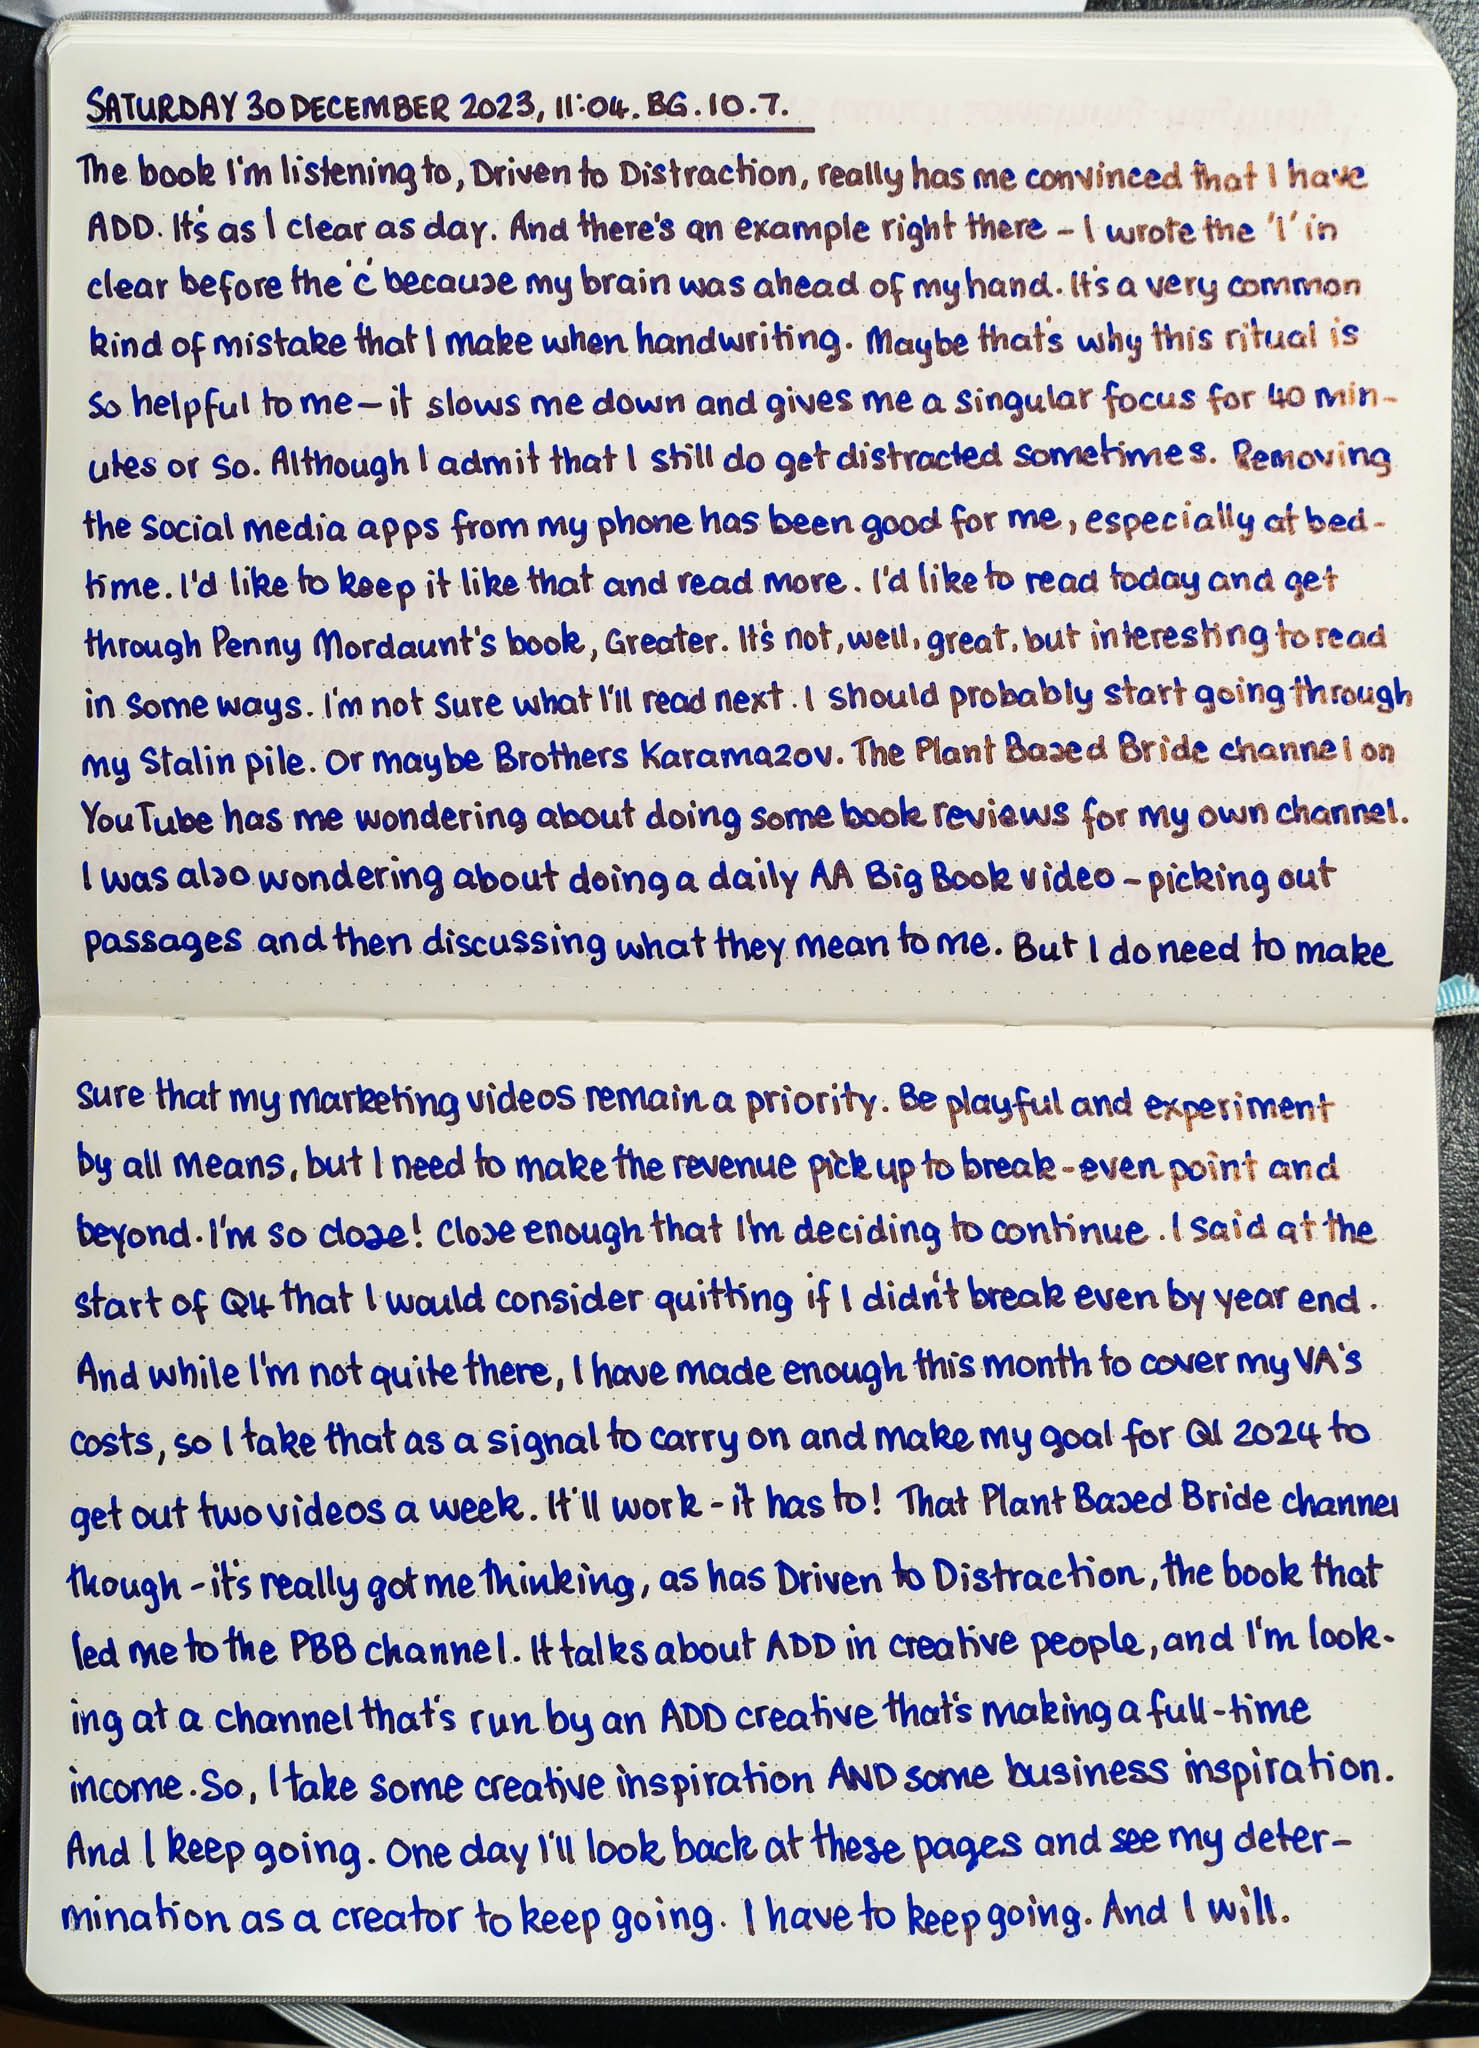 SATURDAY 30 DECEMBER 2023, 11:04. BG. 10.7.
The book I'm listening to, Driven to Distraction, really has me convinced that I have
ADD. It's as l clear as day. And there's an example right there – I wrote the 'l' in
clear before the 'c' because my brain was ahead of my hand. It's a very common
kind of mistake that I make when handwriting. Maybe that's why this ritual is
so helpful to me – it slows me down and gives me a singular focus for 40 min-
utes or so. Although I admit that I still do get distracted sometimes. Removing
the social media apps from my phone has been good for me, especially at bed-
time. I'd like to keep it like that and read more. I'd like to read today and get
through Penny Mordaunt's book, Greater. It's not, well, great, but interesting to read
in some ways. I'm not sure what I'll read next. I should probably start going through
my Stalin pile. Or maybe Brothers Karamazov. The Plant Based Bride channel on
YouTube has me wondering about doing some book reviews for my own channel.
I was also wondering about doing a daily AA Big Book video – picking out
passages and then discussing what they mean to me. But I do need to make
sure that my marketing videos remain a priority. Be playful and experiment
by all means, but I need to make the revenue pick up to break-even point and
beyond. I'm so close! Close enough that I'm deciding to continue. I said at the
start of Q4 that I would consider quitting if I didn't break even by year end.
And while I'm not quite there, I have made enough this month to cover my VA's
costs, so I take that as a signal to carry on and make my goal for Q1 2024 to
get out two videos a week. It'll work – it has to! That Plant Based Bride channel
though – it's really got me thinking, as has Driven to Distraction, the book that
led me to the PBB channel. It talks about ADD in creative people, and I'm look-
ing at a channel that's run by an ADD creative that's making a full-time
income. So, I take some creative inspiration AND some business inspiration.
And I keep going. One day I'll look back at these pages and see my deter-
mination as a creator to keep going. I have to keep going. And I will.